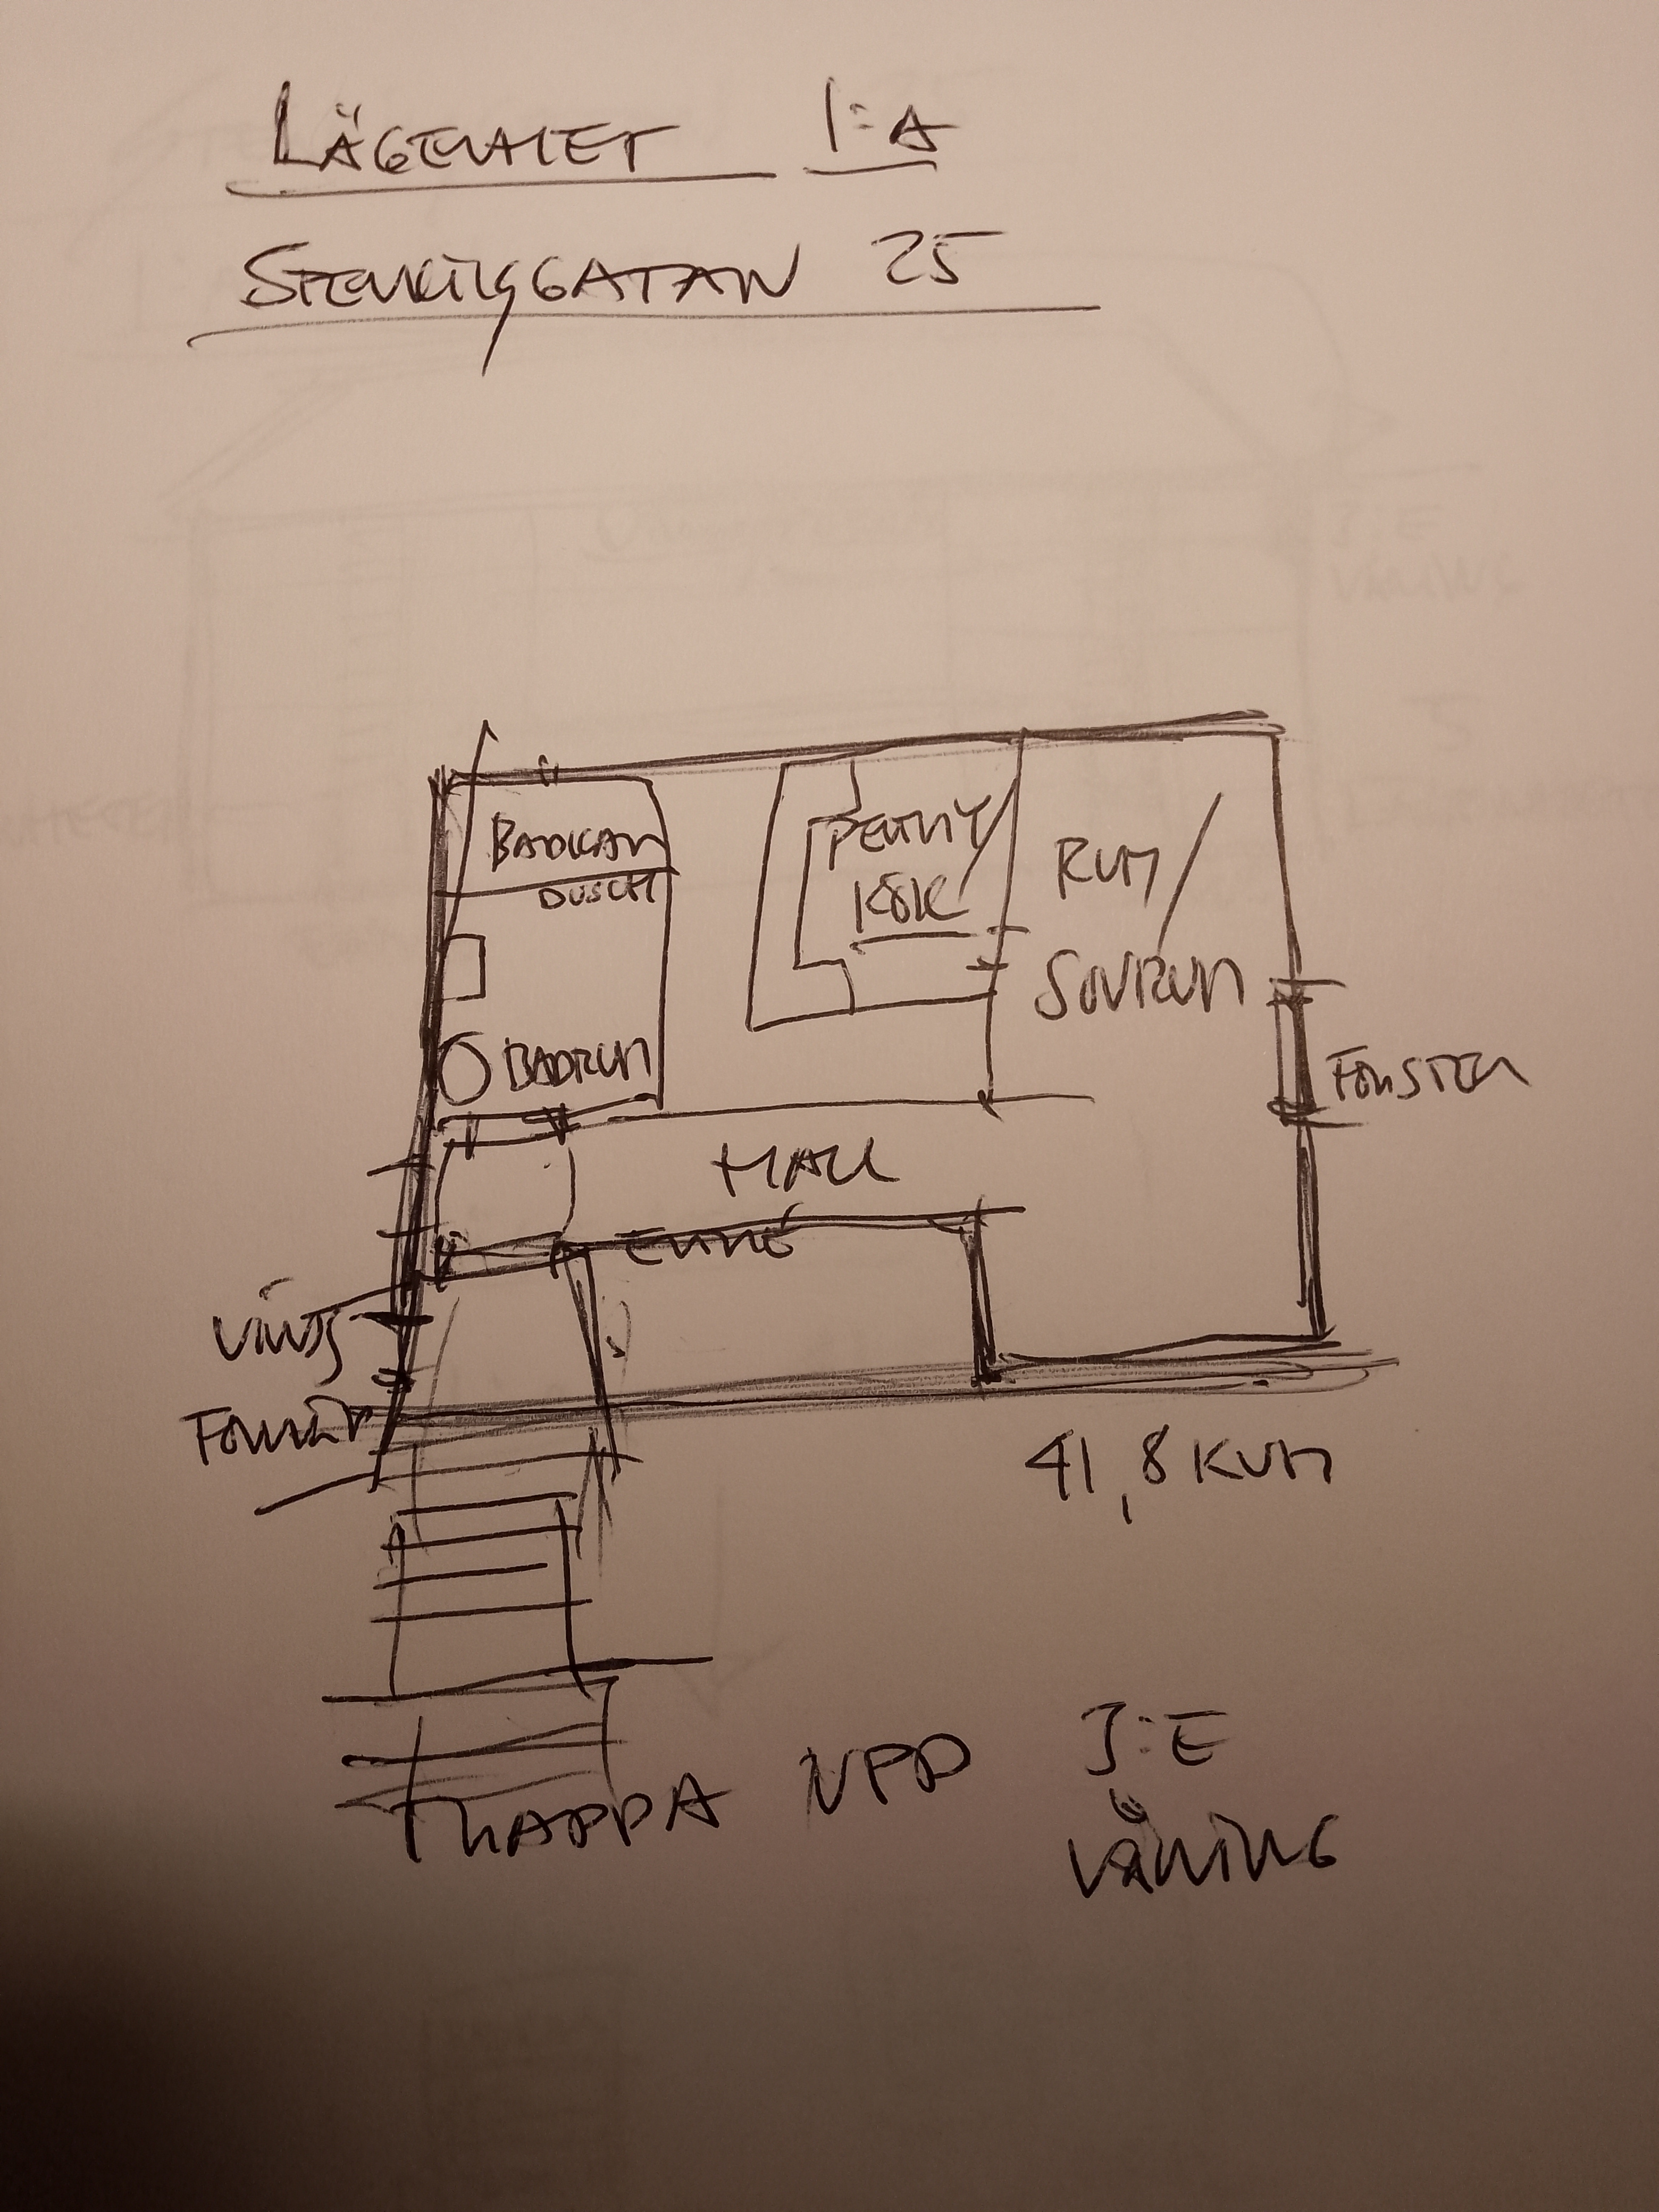 LÄGENHET 1:A
STENKILSGATAN 25
BADKAR
DUSCH
PENTRY/
KÖK
RUM/
SOVRUM
BADRUM
FÖNSTER
HALL
ENTRÉ
VINDS
FÖRRÅD
41,8 KVM
TRAPPA UPP
3:E
VÅNING